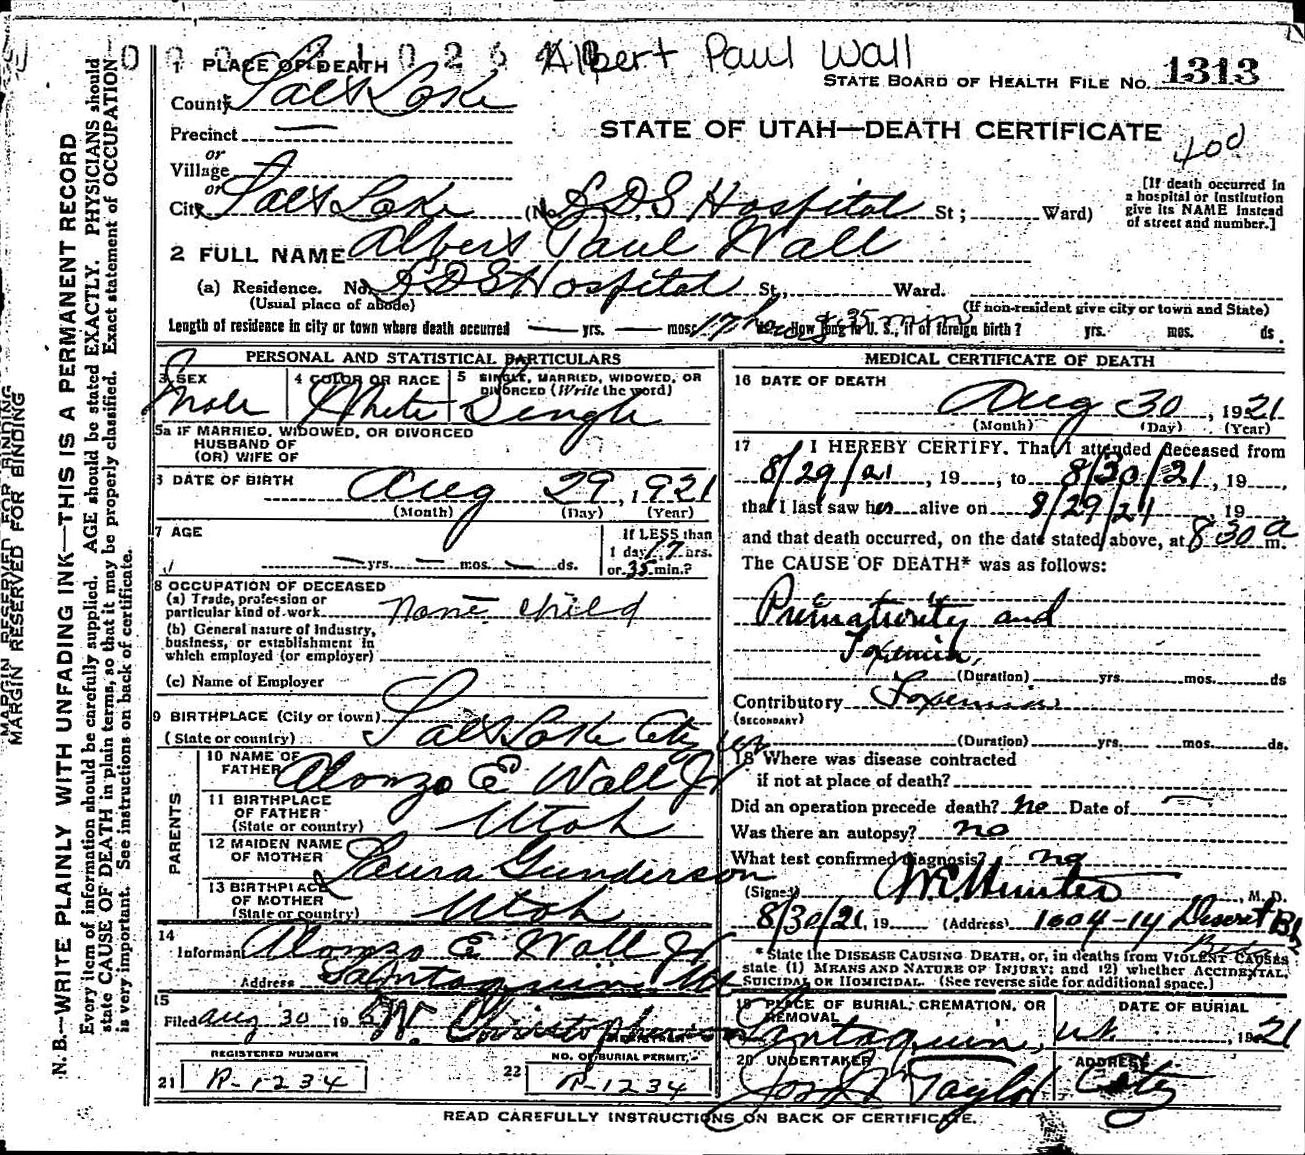 Albert Paul Wall
1 PLACE OF DEATH
STATE BOARD OF HEALTH FILE No. 1313
County Salt Lake
Precinct —
STATE OF UTAH—DEATH CERTIFICATE
400
or
Village
or
City Salt Lake (No. LDS Hospital St; Ward)
[If death occurred in
a hospital or institution
give its NAME instead
of street and number.]
2 FULL NAME Albert Paul Wall
(a) Residence. No. LDS Hospital St., Ward.
(Usual place of abode) (If non-resident give city or town and State)
Length of residence in city or town where death occurred — yrs. — mos. 17 hours 35 min How long in U. S., if of foreign birth? yrs. mos. ds.
PERSONAL AND STATISTICAL PARTICULARS
3 SEX Male
4 COLOR OR RACE White
5 SINGLE, MARRIED, WIDOWED, OR
DIVORCED (Write the word) Single
5a IF MARRIED, WIDOWED, OR DIVORCED
HUSBAND OF
(OR) WIFE OF
6 DATE OF BIRTH Aug 29, 1921
(Month) (Day) (Year)
7 AGE
— yrs. — mos. — ds.
If LESS than
1 day 17 hrs.
or 35 min.?
8 OCCUPATION OF DECEASED
(a) Trade, profession or
particular kind of work none child
(b) General nature of Industry,
business, or establishment in
which employed (or employer)
(c) Name of Employer
9 BIRTHPLACE (City or town) Salt Lake City
(State or country)
PARENTS
10 NAME OF
FATHER Alonzo E Wall Jr
11 BIRTHPLACE
OF FATHER
(State or country) Utah
12 MAIDEN NAME
OF MOTHER Laura Gunderson
13 BIRTHPLACE
OF MOTHER
(State or country) Utah
14
Informant Alonzo E Wall Jr
Address Santaquin Ut
15
Filed Aug 30 192 W. Christopherson
REGISTERED NUMBER
21 R-1234
NO. OF BURIAL PERMIT
22 R-1234
MEDICAL CERTIFICATE OF DEATH
16 DATE OF DEATH
Aug 30, 1921
(Month) (Day) (Year)
17 I HEREBY CERTIFY. That I attended deceased from
8/29/21, 19 , to 8/30/21, 19 ,
that I last saw h alive on 8/29/21, 19
and that death occurred, on the date stated above, at 8 30 a m.
The CAUSE OF DEATH* was as follows:
Prematurity and
Toxemia,
(Duration) yrs. mos. ds
Contributory Toxemia
(SECONDARY)
(Duration) yrs. mos. ds.
18 Where was disease contracted
if not at place of death?
Did an operation precede death? no Date of —
Was there an autopsy? no
What test confirmed diagnosis? no
(Signed) W.E. Hunter, M. D.
8/30/21, 19 (Address) 1604-14 Deseret Bk
Bldg
*State the DISEASE CAUSING DEATH, or, in deaths from VIOLENT CAUSES
state (1) MEANS AND NATURE OF INJURY; and (2) whether ACCIDENTAL,
SUICIDAL OR HOMICIDAL. (See reverse side for additional space.)
19 PLACE OF BURIAL, CREMATION, OR
REMOVAL
Santaquin, Ut.
DATE OF BURIAL
, 1921
20 UNDERTAKER
Taylor
ADDRESS
City
READ CAREFULLY INSTRUCTIONS ON BACK OF CERTIFICATE.
MARGIN RESERVED FOR BINDING
MARGIN RESERVED FOR BINDING
N. B.—WRITE PLAINLY WITH UNFADING INK—THIS IS A PERMANENT RECORD
Every item of information should be carefully supplied. AGE should be stated EXACTLY. PHYSICIANS should
state CAUSE OF DEATH in plain terms, so that it may be properly classified. Exact statement of OCCUPATION
is very important. See instructions on back of certificate.